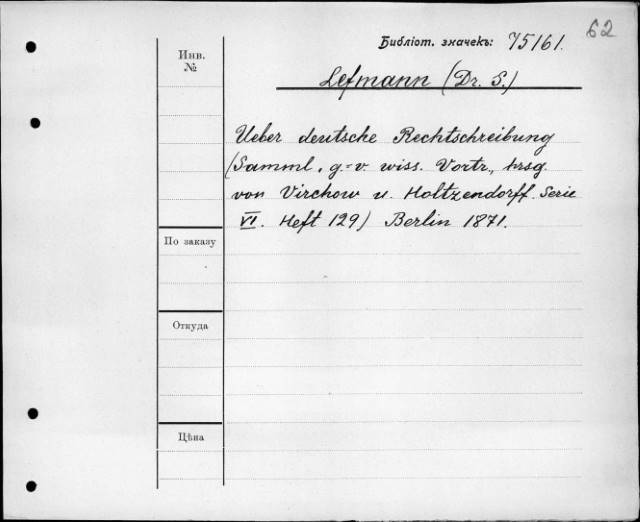 62
Библіот. значекъ: 75161.
Инв.
№
Lefmann (Dr. S.)
Ueber deutsche Rechtschreibung
(Samml. g.-v. wiss. Vortr., hrsg.
von Virchow u. Holtzendorff. Serie
VI. Heft 129) Berlin 1871.
По заказу
Откуда
Цѣна